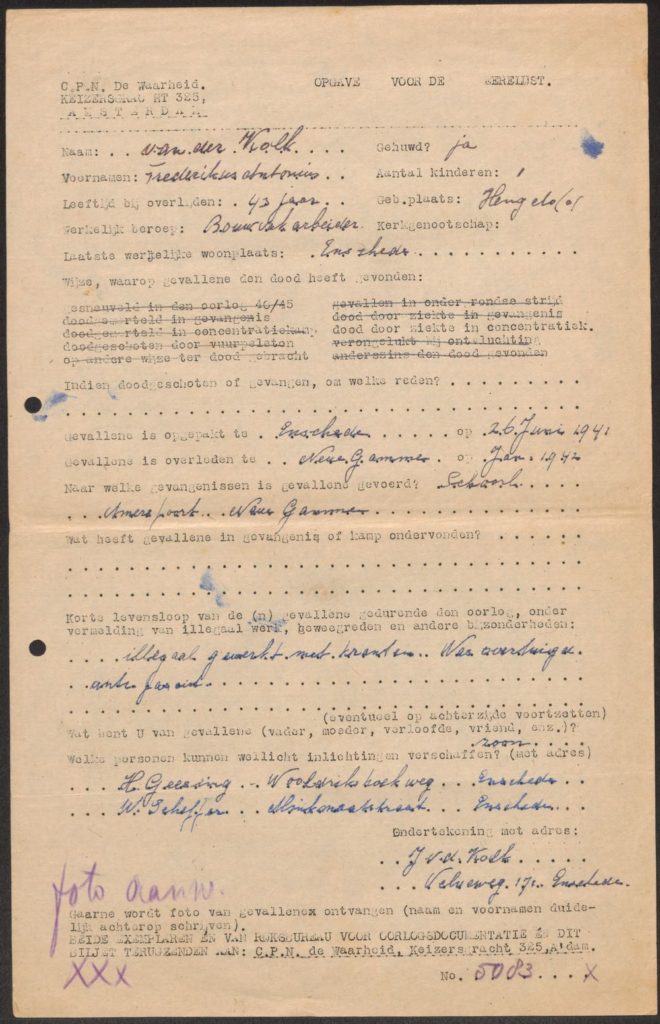 C.P.N. De Waarheid. OPGAVE VOOR DE EERELIJST.
KEIZERSGRACHT 325,
AMSTERDAM
Naam: . . van der Kolk. . . . Gehuwd? ja
Voornamen: Frederikus Antonius . . Aantal kinderen: 1
Leeftijd bij overlijden: . 42 jaar. . . Geb.plaats: Hengelo (o)
Werkelijk beroep: Bouwvakarbeider Kerkgenootschap:
Laatste werkelijke woonplaats: . Enschede . . .
Wijze, waarop gevallene den dood heeft gevonden:
gesneuveld in den oorlog 40/45 gevallen in onder rondse strijd
dood gemarteld in gevangenis dood door ziekte in gevangenis
dood gemarteld in concentratiekamp dood door ziekte in concentratiek.
doodgeschoten door vuurpeleton verongelukt bij ontvluchting
op andere wijze ter dood gebracht anderszins den dood gevonden
Indien doodgeschoten of gevangen, om welke reden? . . . . . . . . . .
Gevallene is opgepakt te . Enschede . . . . . op . 26 Juni 1941
Gevallene is overleden te . . Neue Gammer. . op Jan. 1942
Naar welke gevangenissen is gevallene gevoerd? . . . .
. . Amersfoort . . Neue Gammer . . . .
Wat heeft gevallene in gevangenis of kamp ondervonden? . . . . . .
Korte levensloop van de (n) gevallene gedurende den oorlog, onder
vermelding van illegaal werk, beweegreden en andere bijzonderheden:
. . . . illegaal gewerkt met kranten. . Was overtuigd
. . anti fascist. . .
(eventueel op achterzijde voortzetten)
Wat bent U van gevallene (vader, moeder, verloofde, vriend, enz.)?
zoon
Welke personen kunnen wellicht inlichtingen verschaffen? (met adres)
. . . . H. Geesing . . . . . Enschede . .
. . . . W. Scheffer . . . . . Enschede . .
Ondertekening met adres:
. . J v.d. Kolk . . . . .
. . . . Enschede.
foto aanw.
Gaarne wordt foto van gevallenex ontvangen (naam en voornamen duide-
lijk achterop schrijven).
BEIDE EXEMPLAREN EN VAN RIJKSBUREAU VOOR OORLOGSDOCUMENTATIE EN DIT
BILJET TERUGZENDEN AAN: C.P.N. de Waarheid, Keizersgracht 325, A'dam.
XXX No. 5083. . . . x